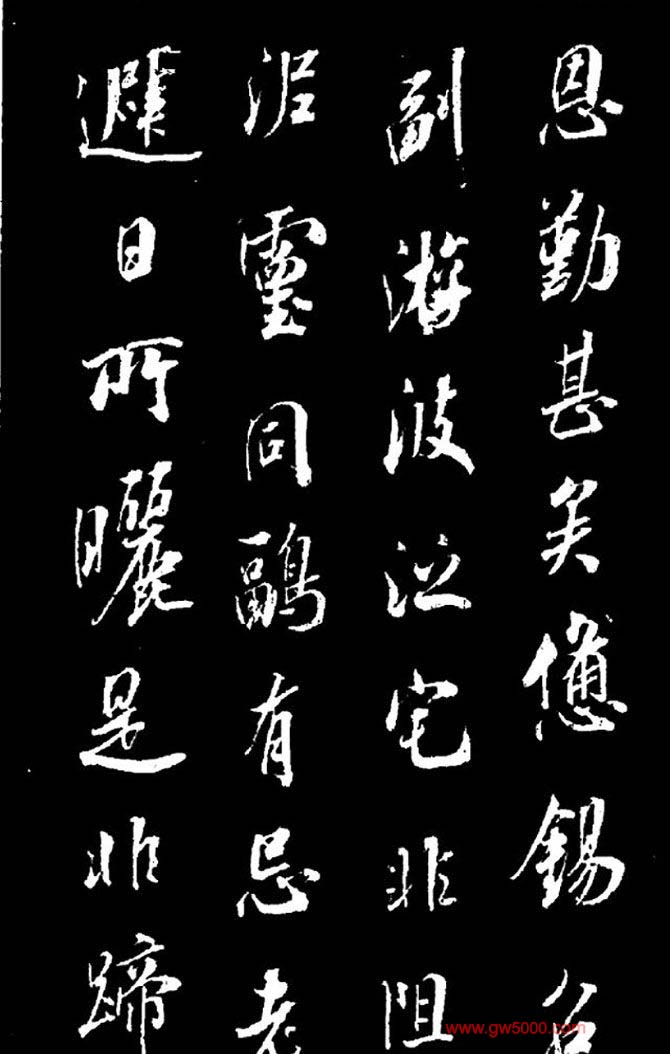 恩勤甚矣憊錫
副游波宅非阻
靈同鷗有忌老
避日所曬是非蹄
www.gw5000.com